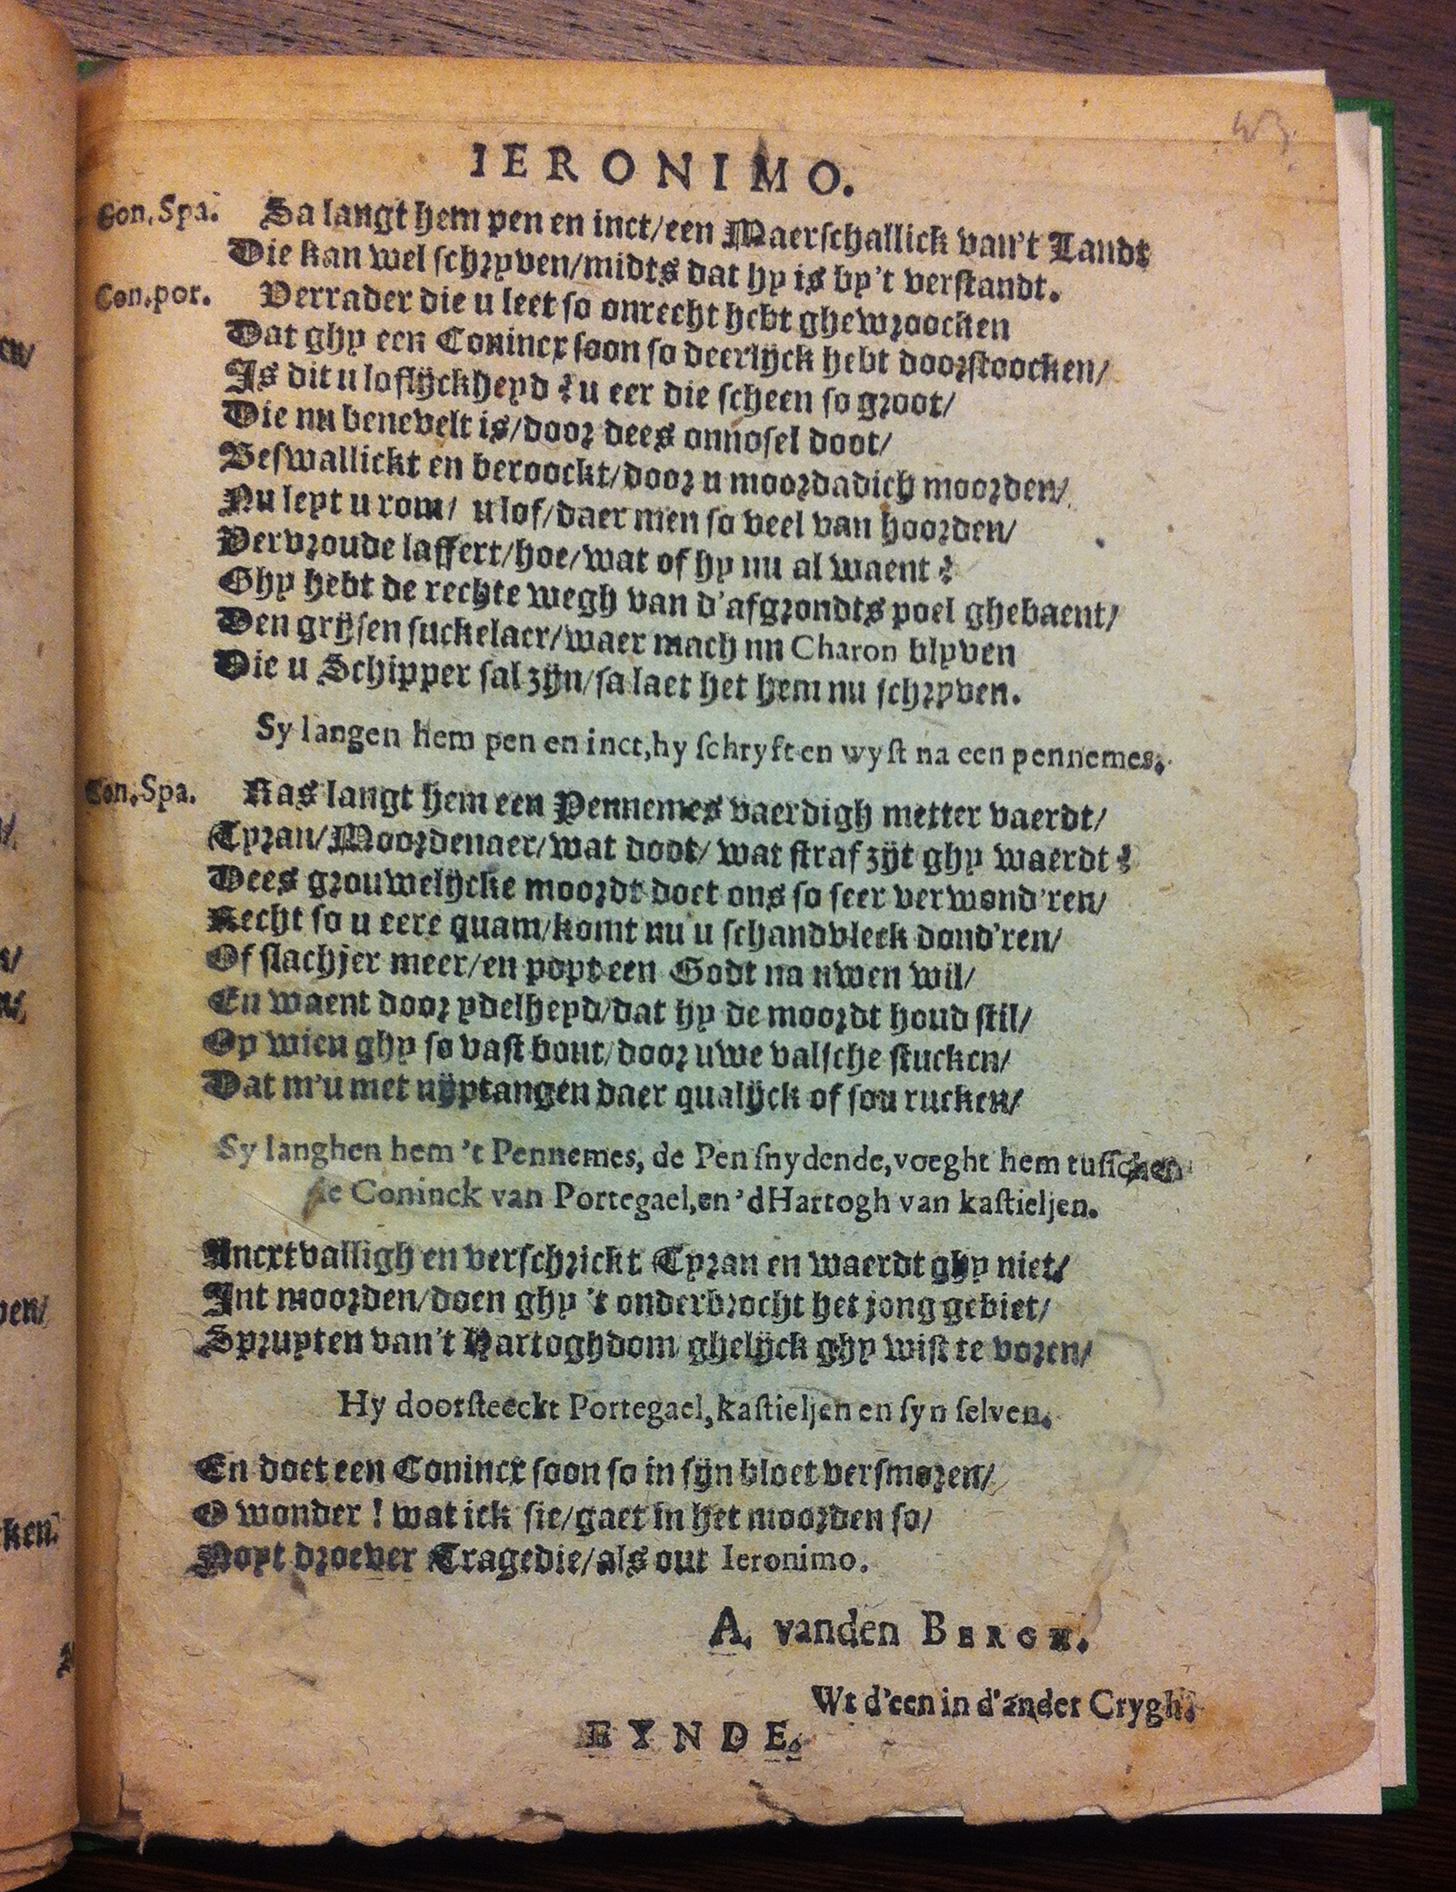 43.
IERONIMO.
Con. Spa. Sa langt hem pen en inct/een Maerschallick van't Landt
Die kan wel schryven/midts dat hy is by't verstandt.
Con. por. Verrader die u leet so onrecht hebt ghewroocken
Dat ghy een Conincx soon so deerlijck hebt doorstoocken/
Is dit u loflijckheyd? u eer die scheen so groot/
Die nu benevelt is/door dees onnosel doot/
Beswallickt en beroockt/door u moordadich moorden/
Nu leyt u rom/ u lof/daer men so veel van hoorden/
Vervroude laffert/hoe/wat of hy nu al waent?
Ghy hebt de rechte wegh van d'afgrondts poel ghebaent/
Den grijsen suckelaer/waer mach nu Charon blyven
Die u Schipper sal zijn/sa laet het hem nu schryven.
Sy langen hem pen en inct,hy schryft en wyst na een pennemes.
Con. Spa. Ras langt hem een Pennemes vaerdigh metter vaerdt/
Tyran/Moordenaer/wat doot/ wat straf zijt ghy waerdt?
Dees grouwelijcke moordt doet ons so seer verwond'ren/
Recht so u eere quam/komt nu u schandvleck dond'ren/
Of slachjer meer/en poyt een Godt na uwen wil/
En waent door ydelheyd/dat hy de moordt houd stil/
Op wien ghy so vast bout/door uwe valsche stucken/
Dat m'u met nijptangen daer qualijck of sou rucken/
Sy langhen hem 't Pennemes, de Pen snydende,voeght hem tusschen
de Coninck van Portegael,en 'dHartogh van kastieljen.
Anextvalligh en verschrickt Tyran en waerdt ghy niet/
Int moorden/doen ghy 't onderbrocht het jong gebiet/
Spruyten van't Hartoghdom ghelijck ghy wist te voren/
Hy doorsteeckt Portegael,kastieljen en syn selven.
En doet een Conincx soon so in sijn bloet versmoren/
O wonder! wat ick sie/gaet in het moorden so/
Noyt droever Tragedie/als out Ieronimo.
A. vanden BERGH.
Wt d'een in d'ander Crygh.
EYNDE.